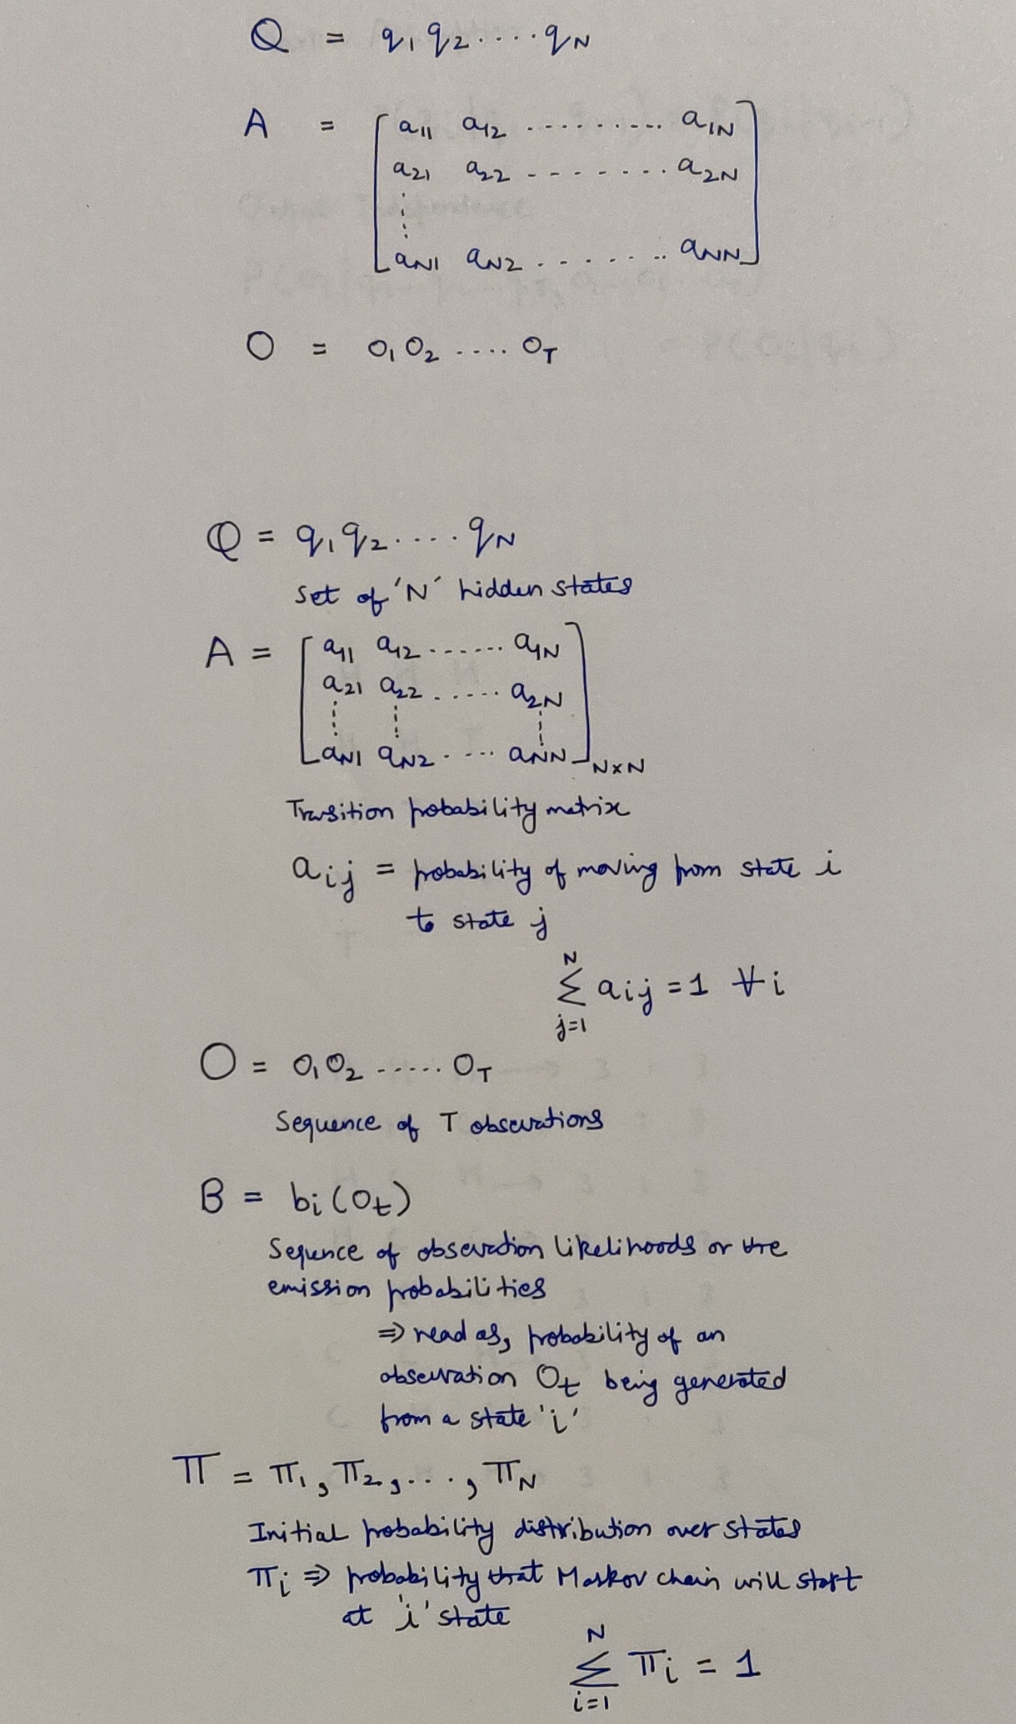 Q = q₁ q₂ .... q_N
A = [ a₁₁ a₁₂ ......... a₁N
a₂₁ a₂₂ ........ a₂N
⋮
aN₁ aN₂ ........ aNN ]
O = O₁ O₂ .... O_T
Q = q₁ q₂ .... q_N
Set of 'N' hidden states
A = [ a₁₁ a₁₂ ....... a₁N
a₂₁ a₂₂ ...... a₂N
⋮ ⋮ ⋮
aN₁ aN₂ .... aNN ] N×N
Transition probability matrix
aij = probability of moving from state i
to state j
N
Σ aij = 1 ∀i
j=1
O = O₁ O₂ ...... O_T
Sequence of T observations
B = bi(Ot)
Sequence of observation likelihoods or the
emission probabilities
⇒ read as, probability of an
observation Ot being generated
from a state 'i'
π = π₁, π₂, ..., π_N
Initial probability distribution over states
πi ⇒ probability that Markov chain will start
at 'i' state
N
Σ πi = 1
i=1